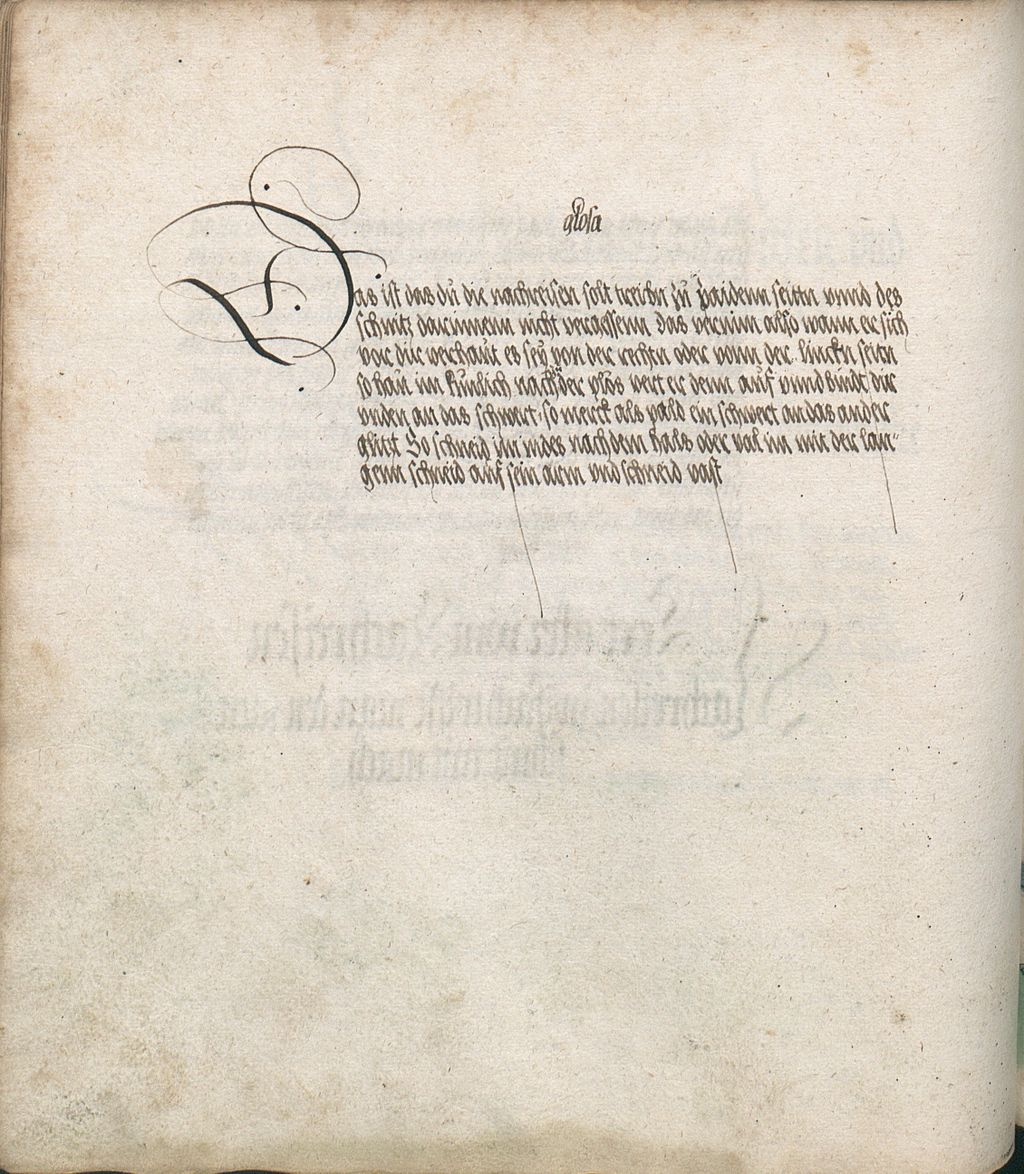 glosa
Das ist das dú die nachreisen solt treibn zú paidenn seittn vnnd des
schnitz darinnenn nicht vergessenn das vernim also wann er sich
vor dir verhaut es seÿ von der rechtn oder vonn der linckn seitn
so hau im künlich nach der plös vert er denn auf vnnd bindt dir
vnden an das schwert so merck als pald ein schwert an das ander
glitzt So schneid im indes nach dem hals oder val im mit der lan-
genn schneid auf sein arm vnd schneid vast